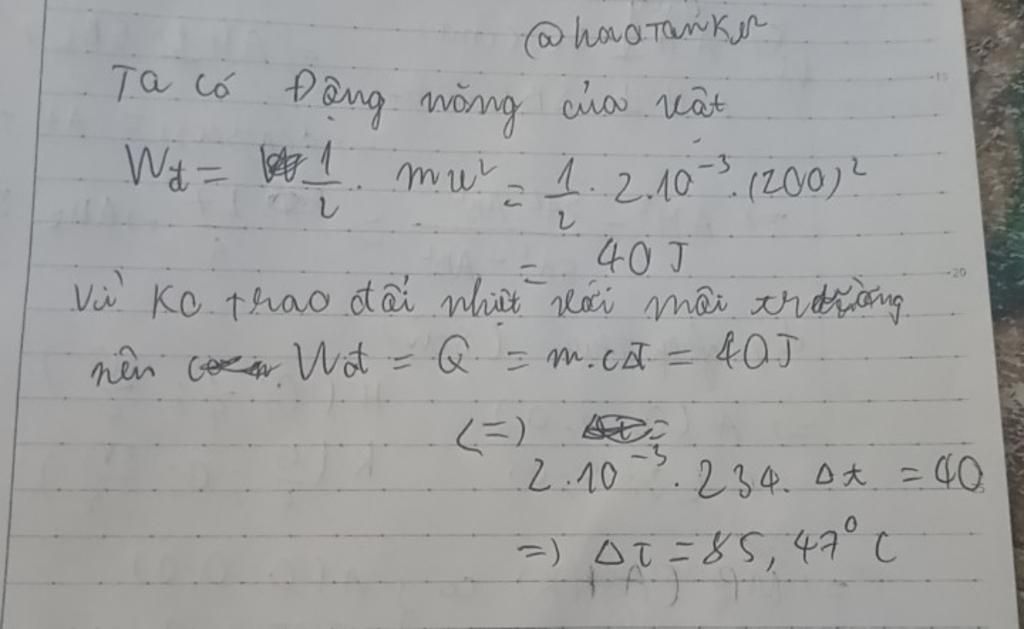 @haoTanKer
Ta có Động năng của vật
Wđ = 1/2 . mv² = 1/2 . 2.10⁻³ . (200)²
= 40 J
Vì Ko trao đổi nhiệt với môi trường
nên Wđ = Q = m.cΔ = 40J
(=)
2.10⁻³ . 234. Δt = 40
=) Δt = 85,47° C
15
20